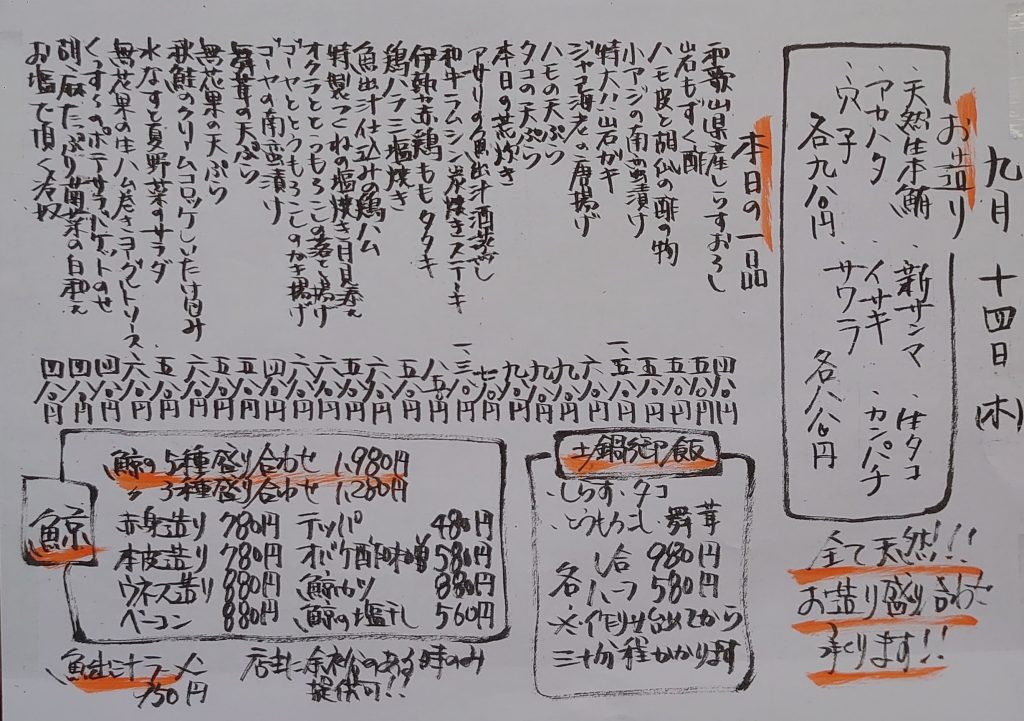 九月 十四日 (木)
お造り
・天然生本鮪 ・新サンマ ・生タコ
・アカハタ ・イサキ ・カンパチ
・穴子 ・サワラ
各九八〇円 各八八〇円
全て天然!!
お造り盛り合わせ
承ります!!
本日の一品
和歌山県産しらすおろし 四八〇円
岩もずく酢 五八〇円
ハモ皮と胡瓜の酢の物 五八〇円
小アジの南蛮漬け 五八〇円
特大!!岩ガキ
ジャコ海老の唐揚げ
ハモの天ぷら 九八〇円
タコの天ぷら 九八〇円
本日の荒炊き
アサリの魚出汁酒蒸し
和牛ラムシン炭焼きステーキ
伊勢赤鶏ももタタキ
鶏ハラミ塩焼き
魚出汁仕込みの鶏ハム
特製つくねの塩焼き月見添え
オクラととうもろこしの落とし揚げ
ゴーヤととうもろこしのかき揚げ
ゴーヤの南蛮漬け 四八〇円
舞茸の天ぷら 五八〇円
無花果の天ぷら
秋鮭のクリームコロッケしいたけ包み
水なすと夏野菜のサラダ
無花果の生ハム巻きヨーグルトソース 六八〇円
くっす〜のポテサラバケットのせ 四八〇円
胡麻たっぷり菊菜の白和え 四八〇円
お塩で頂く冷奴 四八〇円
土鍋御飯
・しらす ・タコ
・とうもろこし ・舞茸
各 一合 980円
ハーフ 580円
※作り出してから
三十分程かかります
鯨
鯨の5種盛り合わせ 1,980円
〃 3種盛り合わせ 1,280円
赤身造り 780円 テッパ 480円
本皮造り 780円 オバケ酢味噌 580円
ウネス造り 880円 鯨カツ 880円
ベーコン 880円 鯨の塩干し 560円
魚出汁ラーメン
750円
店主に余裕のある時のみ
提供可!!